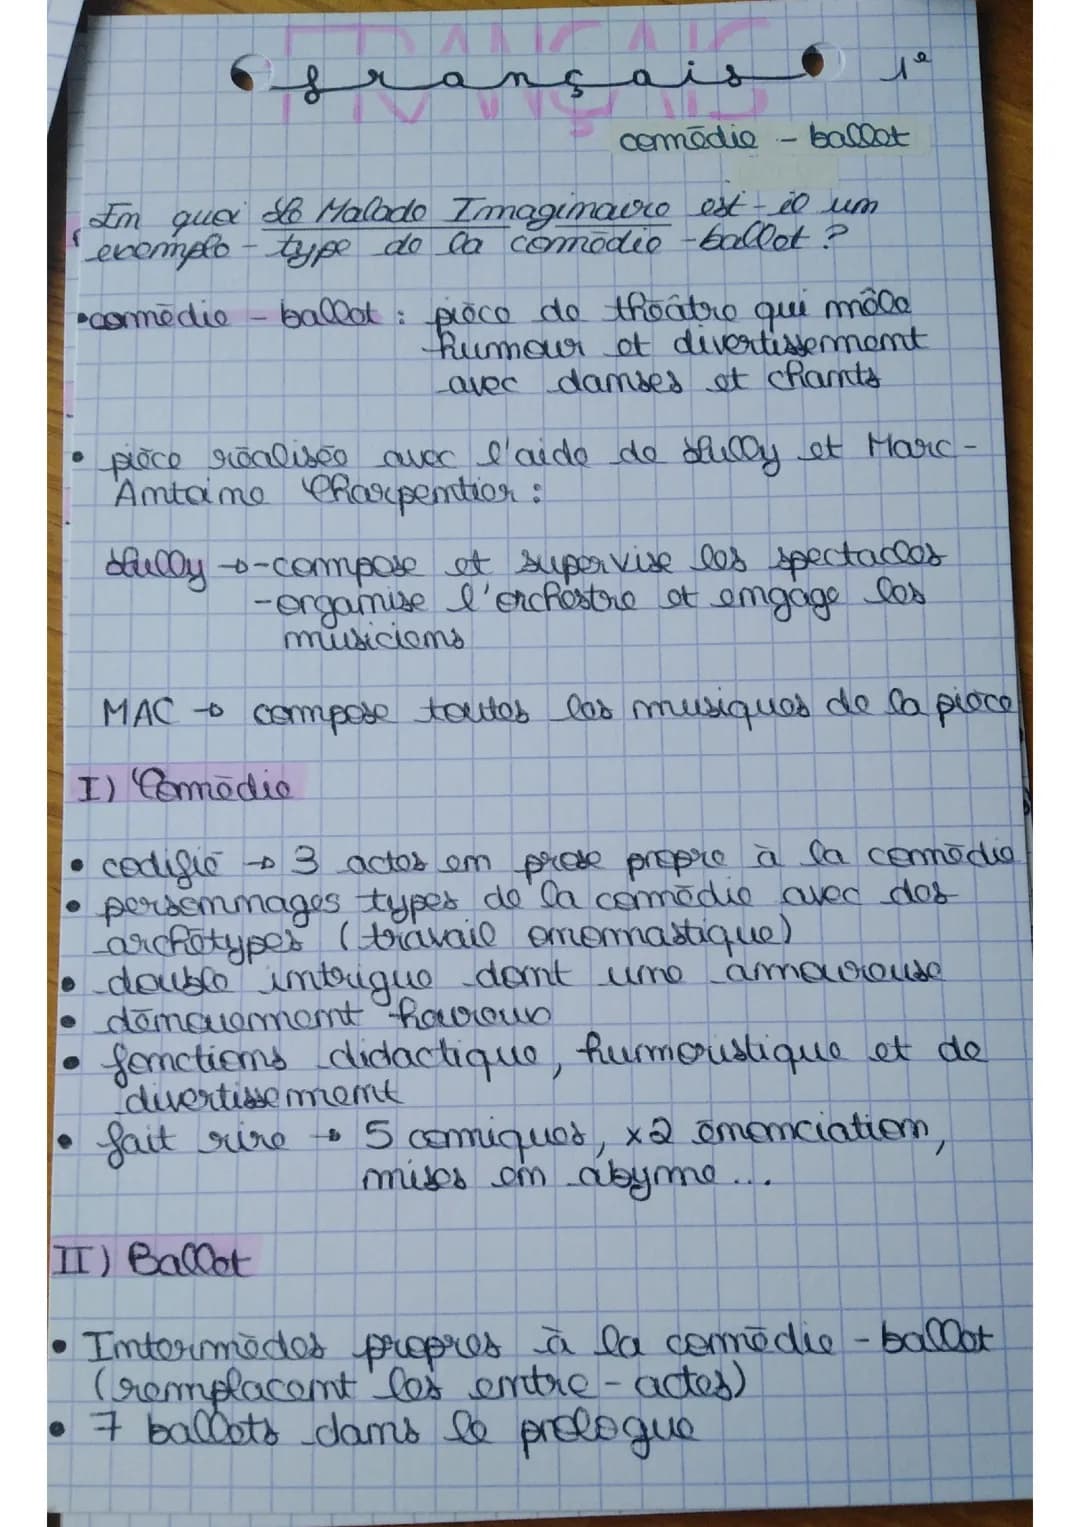 FRANÇAIS
français 1e
comédie - ballet
En quoi Le Malade Imaginaire est-il un
exemple-type de la comédie-ballet ?
•comédie - ballet : pièce de théâtre qui mêle
humour et divertissement
avec danses et chants
• pièce réalisée avec l'aide de Lully et Marc-
Antoine Charpentier :
Lully → -compose et supervise les spectacles
-organise l'orchestre et engage les
musiciens
MAC → compose toutes les musiques de la pièce
I) Comédie
• codifié → 3 actes en prose propre à la comédie
• personnages types de la comédie avec des
archétypes (travail onomastique)
• double intrigue dont une amoureuse
• dénouement heureux
• fonctions didactique, humoristique et de
divertissement
• fait rire → 5 comiques, x2 énonciation,
mises en abyme...
II) Ballet
• Intermèdes propres à la comédie - ballet
(remplacent les entre-actes)
• 7 ballets dans le prologue